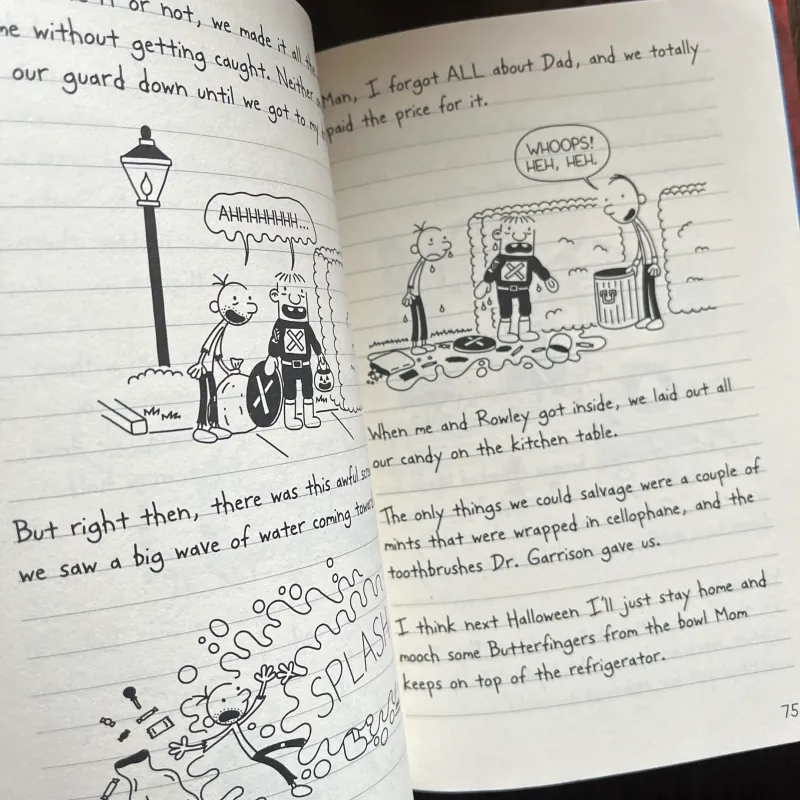 or not, we made it all the
without getting caught. Neither
our guard down until we got to my
AHHHHHHHH...
X
X
But right then, there was this awful
we saw a big wave of water coming
SPLASH
Man, I forgot ALL about Dad, and we totally
paid the price for it.
WHOOPS!
HEH, HEH.
X
X
When me and Rowley got inside, we laid out all
our candy on the kitchen table.
The only things we could salvage were a couple of
mints that were wrapped in cellophane, and the
toothbrushes Dr. Garrison gave us.
I think next Halloween I'll just stay home and
mooch some Butterfingers from the bowl Mom
keeps on top of the refrigerator.
75